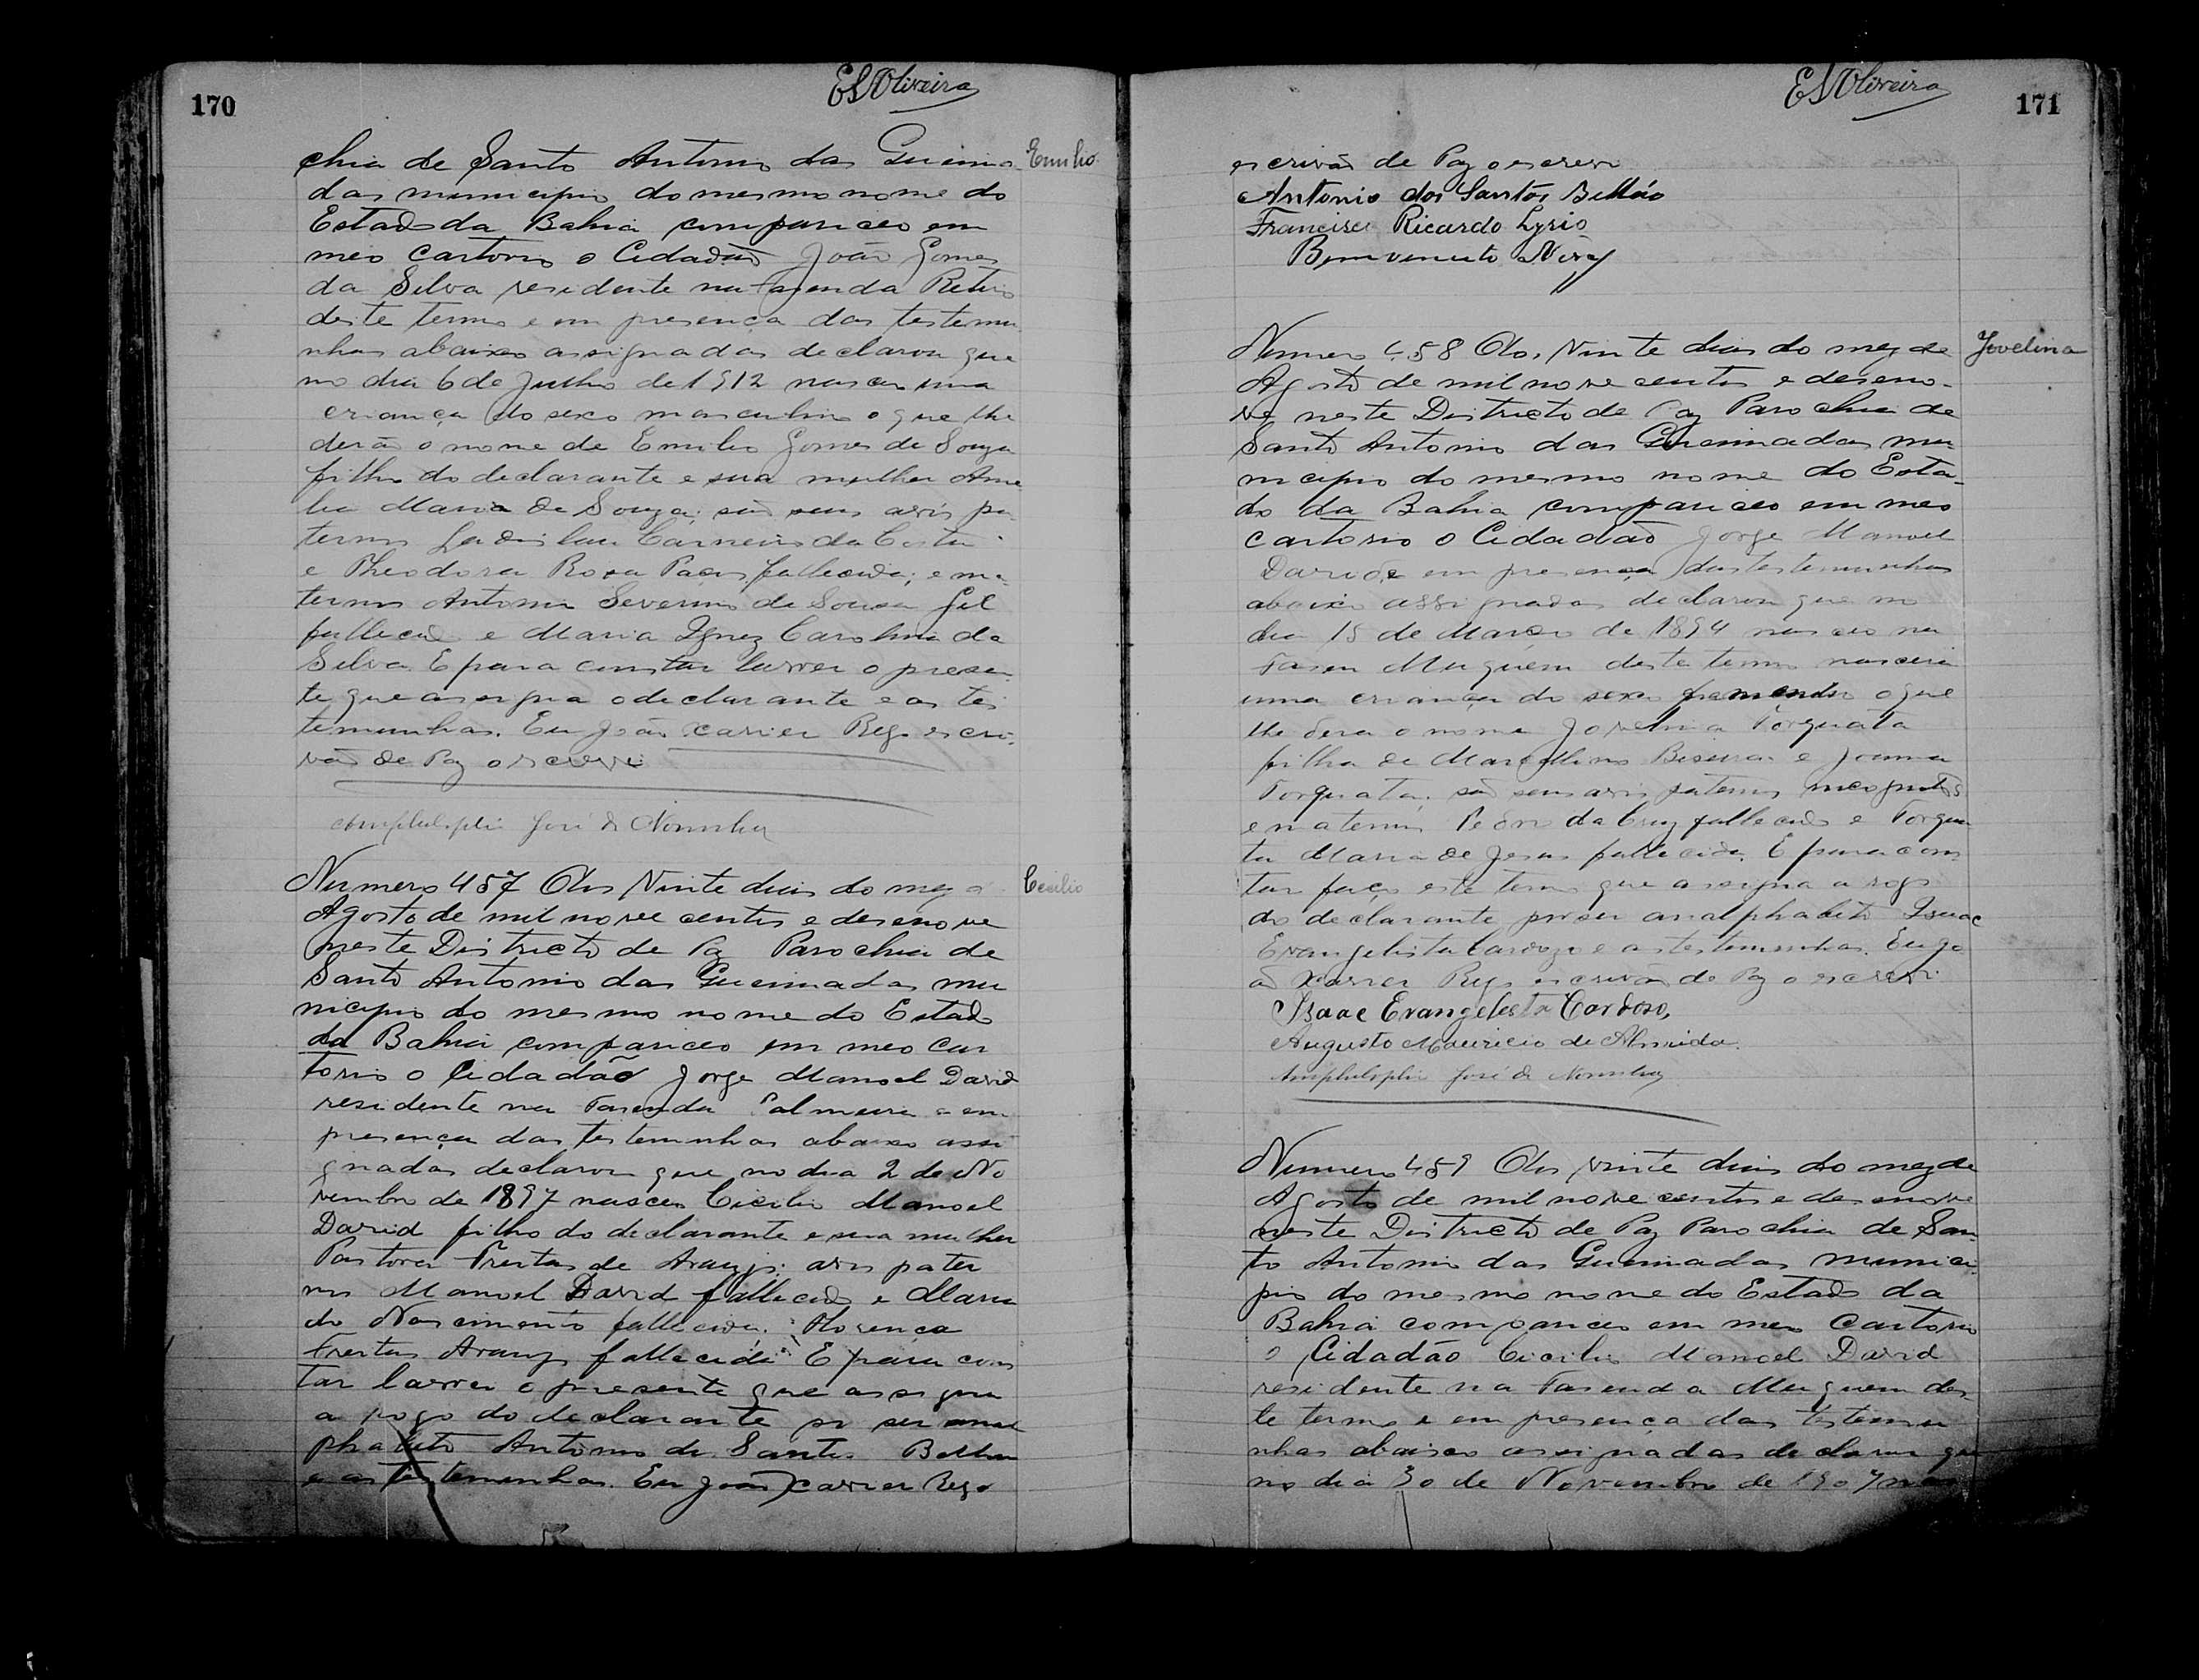 170
ESOliveira
chia de Santo Antonio das Queima-
Emilio
das municipio do mesmo nome do
Estado da Bahia compariceo em
meo cartorio o Cidadão João Gomes
da Silva residente na fazenda Retiro
deste termo e em presença das testemu
nhas abaixo assignadas declarou que
no dia 6 de Julho de 1912 nasceu uma
criança do sexo masculino o que lhe
derão o nome de Emilio Gomes de Souza
filho do declarante e sua mulher Ame
lia Maria de Souza; são seus avós pa
ternos Ladislau Carneiro da Costa
e Theodora Rosa fallecida; e ma-
ternos Antonio Severino de Sousa Gil
fallecido e Maria Ignez Carolina da
Silva. E para constar lavrei o presen
te que assigna o declarante e as tes
temunhas. Eu João Xavier Rego escri-
vão de Paz o escrevi
José de Noronha
Numero 457 Aos Vinte dias do mez d
Cecilio
Agosto de mil nove centos e desenove
neste Districto de Paz Parochia de
Santo Antonio das Queimadas mu
nicipio do mesmo nome do Estado
da Bahia compariceo em meo car
torio o Cidadão Jorge Manoel David
residente na Fazenda Palmeira e em
presença das testemunhas abaixo assi
gnadas declarou que no dia 2 de No
vembro de 1897 nasceu Cicilio Manoel
David filho do declarante e sua mulher
Pastora Freitas de Araujo; avós pater
nos Manoel David fallecido e Maria
do Nascimento fallecida; Florença
Freitas Araujo fallecida. E para cons
tar lavrei o presente que assigna
a rogo do declarante por ser anal
phabeto Antonio dos Santos Beltrão
e as testemunhas. Eu João Xavier Rego
171
ESOliveira
escrivão de Paz o escrevi
Antonio dos Santos Beltrão
Francisco Ricardo Lyrio
Bemvenuto
Numero 458 Aos Vinte dias do mez de
Jovelina
Agosto de mil nove centos e deseno-
ve neste Districto de Paz Parochia de
Santo Antonio das Queimadas mu-
nicipio do mesmo nome do Esta-
do da Bahia compariceo em meo
cartorio o Cidadão Jorge Manoel
David e em presença das testemunhas
abaixo assignadas declarou que no
dia 15 de Março de 1894 nasceo na
Fasen Muquem deste termo nasceu
uma criança do sexo o que
lhe dera o nome Jovelina Torquata
filha de Marcellino Beserra e Joanna
Torquata; são seus avós paternos incognitos
e maternos Pedro da Cruz fallecido e Torqua
ta Maria de Jesus fallecida. E para cons
tar faço este termo que assigna a rogo
do declarante por ser analphabeto Isaac
Evangelista Cardozo e as testemunhas. Eu Jo
ão Xavier Rego escrivão de Paz o escrevi
Isaac Evangelista Cardoso,
Augusto Mauricio de Almeida.
José de Noronha
Numero 459 Aos vinte dias do mez de
Agosto de mil nove centos e desenove
neste Districto de Paz Parochia de San
to Antonio das Queimadas munici-
pio do mesmo nome do Estado da
Bahia compariceo em meo Cartorio
o Cidadão Cicilio Manoel David
residente na Fasenda Muquem des-
te termo e em presença das testemu
nhas abaixo assignadas declarou que
no dia 30 de Novembro de 1907 nas